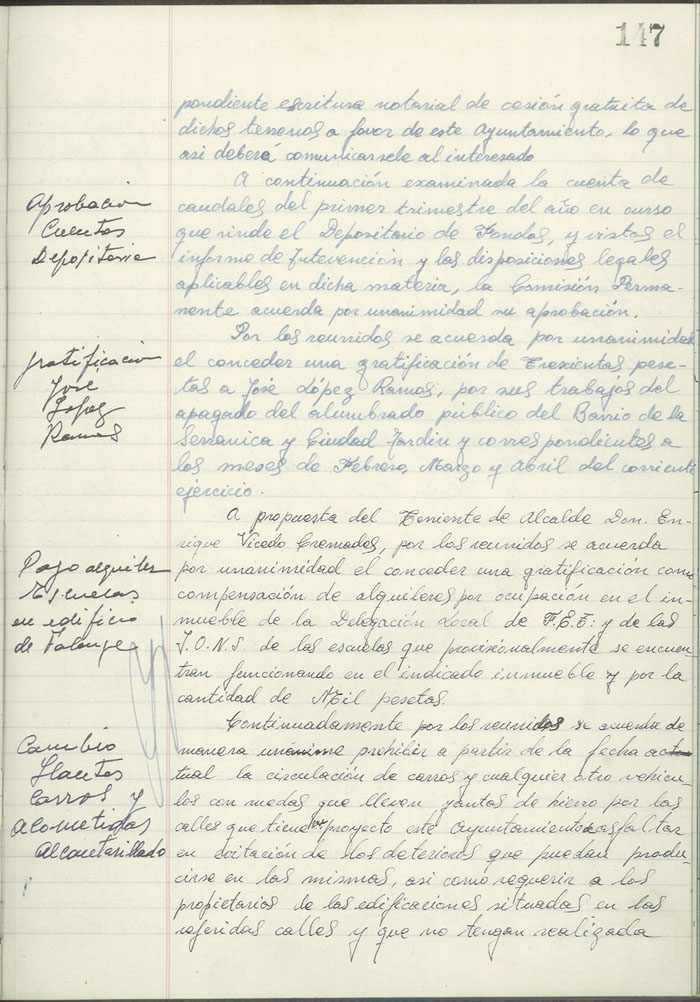 147
pondiente escritura notarial de cesión gratuita de
dichos terrenos a favor de este Ayuntamiento, lo que
asi deberá comunicarsele al interesado
Aprobacion
Cuentas
Depositaria
A continuación examinada la cuenta de
caudales del primer trimestre del año en curso
que rinde el Depositario de Fondos, y vistos el
informe de Intervención y las disposiciones legales
aplicables en dicha materia, la Comisión Perma-
nente acuerda por unanimidad su aprobación.
gratificacion
José
Lopez
Ramos
Por los reunidos se acuerda por unanimidad
el conceder una gratificación de Trescientas pese-
tas a José López Ramos, por sus trabajos del
apagado del alumbrado público del Barrio de la
Serranica y Ciudad Jardin y correspondientes a
los meses de Febrero, Marzo y Abril del corriente
ejercicio.
Pago alquiler
Escuelas
en edificio
de Falange
A propuesta del Teniente de Alcalde Don. En-
rique Vicedo Cremades, por los reunidos se acuerda
por unanimidad el conceder una gratificación como
compensación de alquileres por ocupación en el in-
mueble de la Delegación Local de F.E.T. y de las
J.O.N.S de las escuelas que provisionalmente se encuen-
tran funcionando en el indicado inmueble y por la
cantidad de Mil pesetas.
Cambio
Llantas
Carros y
Acometidas
Alcantarillado
Continuadamente por los reunidos se acuerda de
manera unánime prohibir a partir de la fecha actu
tual la circulación de carros y cualquier otro vehicu-
los con ruedas que lleven yantas de hierro por las
calles que tiene en proyecto este Ayuntamiento asfaltar
en evitación de los deterioros que puedan produ-
cirse en las mismas, asi como requerir a los
propietarios de las edificaciones situadas en las
referidas calles y que no tengan realizada